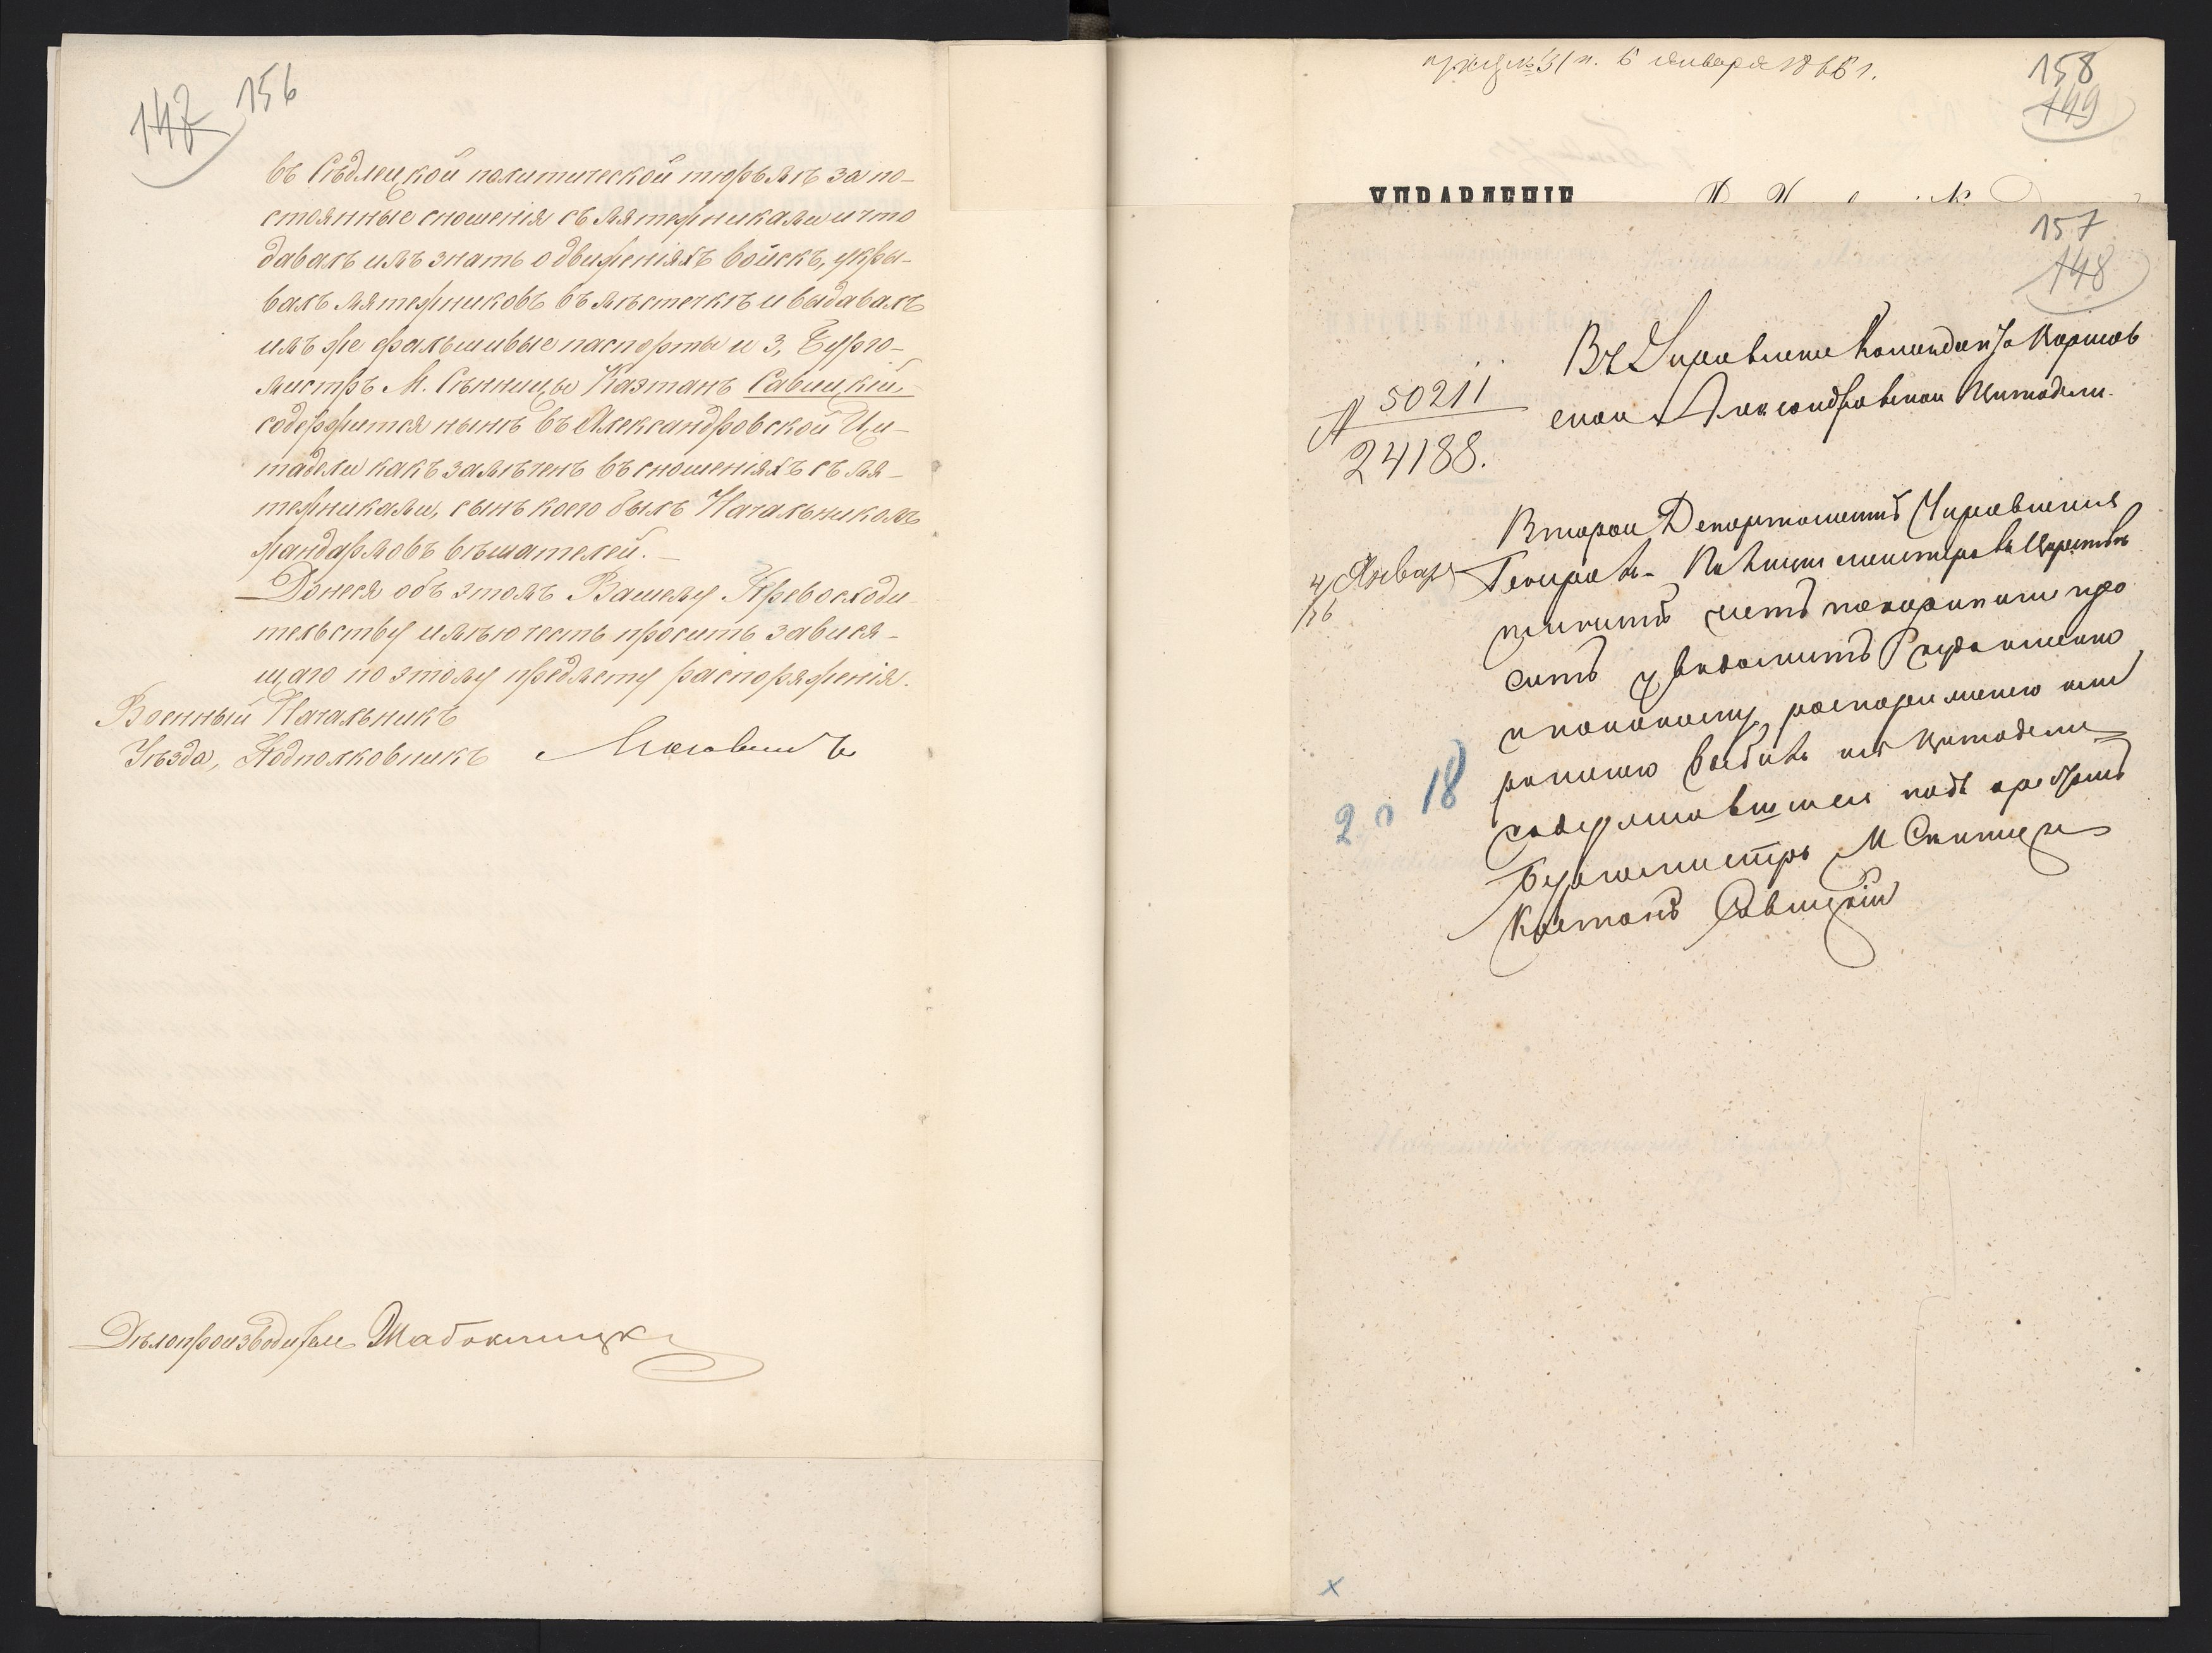 147 156
въ Сѣдлецкой политической тюрьмѣ за по-
стоянные сношенія съ мятежниками и что
давалъ имъ знать о движеніяхъ войскъ, укры-
валъ мятежниковъ въ мѣстечкѣ и выдавалъ
имъ же фальшивые паспорты и 3, Бурго-
мистръ М. Сѣнницы Каэтанъ Савицкій
содержится нынѣ въ Александровской Ци-
тадели какъ замѣченъ въ сношеніяхъ съ мя-
тежниками, сынъ коего былъ Начальникомъ
жандармовъ вѣшателей.
Донеся объ этомъ Вашему Превосходи-
тельству имѣю честь просить завися-
щаго по этому предмету распоряженія.
Военный Начальникъ
Уѣзда, Подполковникъ
Дѣлопроизводитель
6 января 1866 г.
158
149
УПРАВЛЕНІЕ
157
148
Въ Управленіе Коменданта Варшав
ской Александровской Цитадели.
N 50211
24188.
Второй Департаментъ Управленія
4 Января
Генералъ-Полиціймейстера въ Царствѣ
66
честь покорнѣйше про
ситъ увѣдомить
и по какому распоряженію или
рѣшенію выбылъ изъ Цитадели
содержавшійся подъ арестомъ
2 18
Бургомистръ М Сѣнницы
Каетанъ Савицкій
х